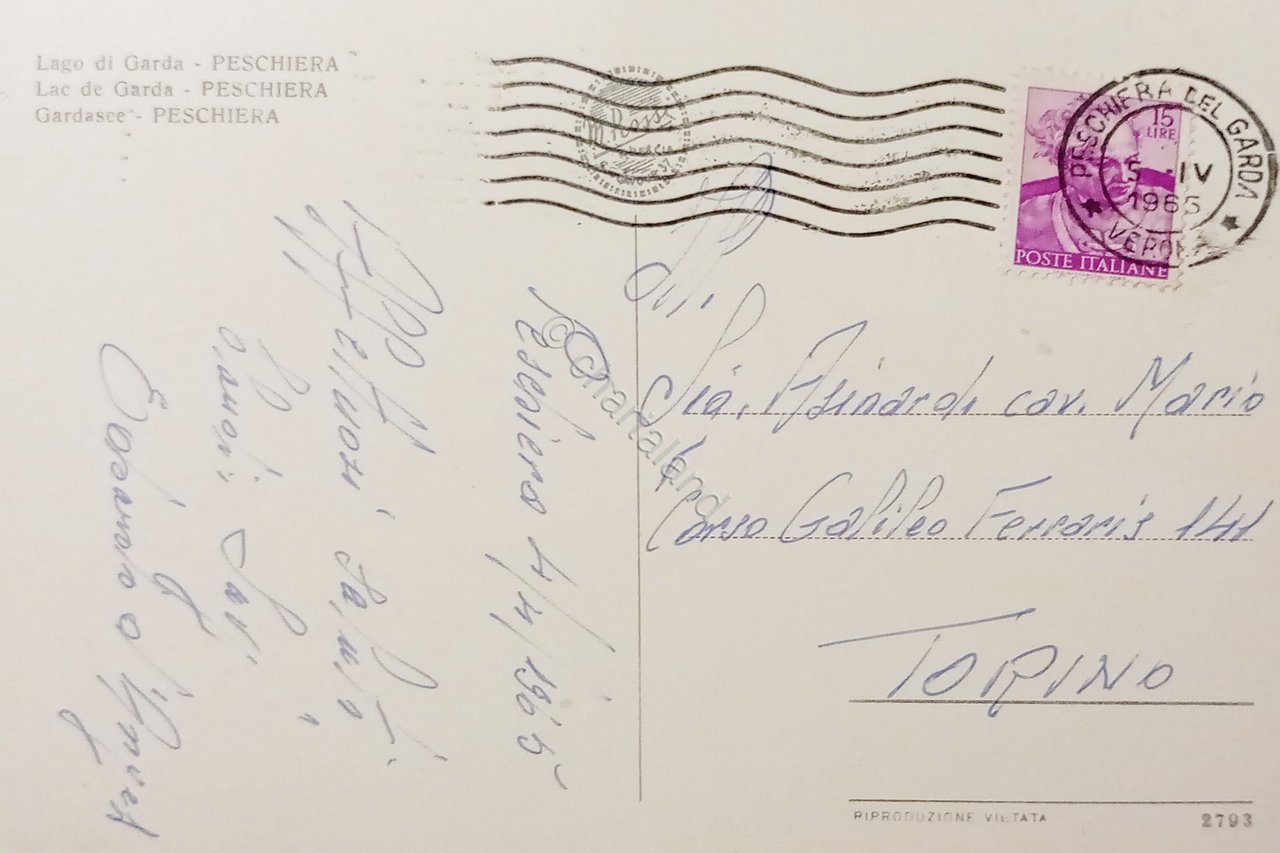 Lago di Garda - PESCHIERA
Lac de Garda - PESCHIERA
Gardasee - PESCHIERA
15
LIRE
POSTE ITALIANE
PESCHIERA DEL GARDA
5 - IV
1965
VERONA
Peschiera 4/4/1965
Affettuosi saluti
Edoardo
Asinardi cav. Mario
Corso Galileo Ferraris 141
TORINO
© Chartaland
RIPRODUZIONE VIETATA
2793